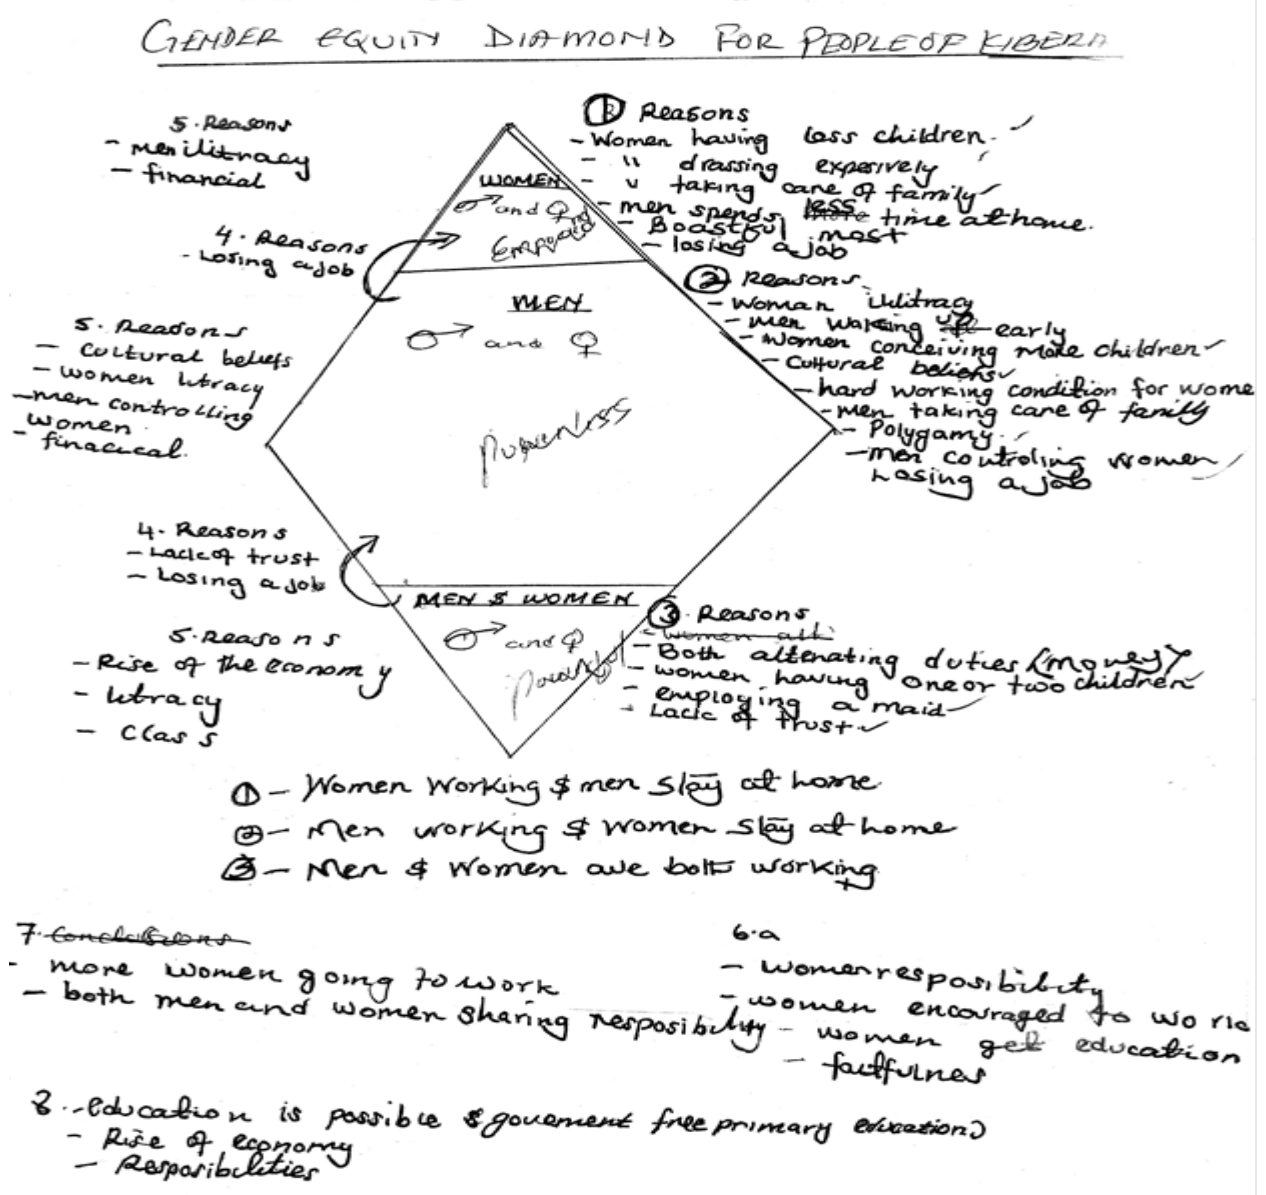 GENDER EQUITY DIAMOND FOR PEOPLE OF KIBERA
5. Reasons
- men ilitracy
- financial
4. Reasons
- Losing a job
5. Reasons
- cultural beliefs
- women litracy
- men controlling
women
- finacical.
4. Reasons
- Lack of trust
- Losing a job
5. Reasons
- Rise of the economy
- litracy
- class
WOMEN
♂ and ♀
MEN
♂ and ♀
powerless
MEN $ WOMEN
♂ and ♀
powerful
① Reasons
- Women having less children.
- " drassing expesively
- " taking care of family
- men spends less more time at home.
- Boastful most
- losing a job
② Reasons
- Woman ilitracy
- men waking up early
- women conceiving more children
- Cultural beliefs
- hard working condition for wome
- men taking care of family
- Polygamy
- men controling women
Losing a job
③. Reasons
- women
- Both altenating duties (money)
- women having one or two children
- employing a maid
- Lack of trust
① - Women Working $ men stay at home
② - Men working $ women stay at home
③ - Men $ Women are both working
7. Conclusions
- more women going to work
- both men and women sharing resposibility
6.a
- women resposibility
- women encouraged to work
- women get education
- faitfulnes
8. - education is possible $ government free primary education)
- Rise of economy
- Resposibilities